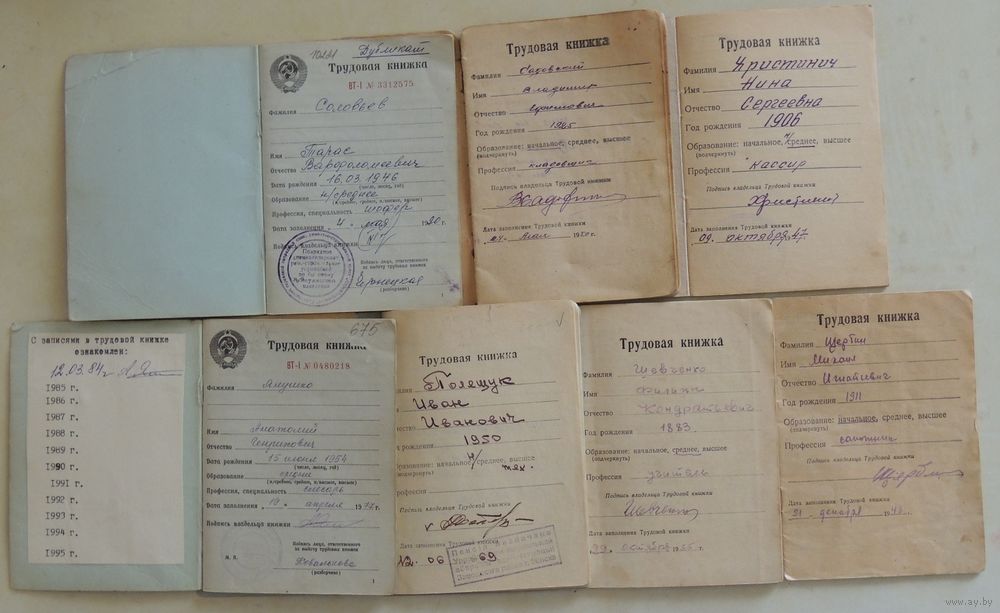 10241
Дубликат
Трудовая книжка
ВТ-I № 3312575
Фамилия Соловьев
Имя Тарас
Отчество Варфоломеевич
Дата рождения 16.03.1946
(число, месяц, год)
Образование н/среднее
Профессия, специальность шофер
Дата заполнения 4. мая 1980 г.
Подпись владельца
Подпись лица, ответственного
за выдачу трудовых книжек
(разборчиво)
1
Трудовая книжка
Фамилия
Имя Владимир
Отчество
Год рождения 1925
Образование: начальное, среднее, высшее
(подчеркнуть)
Профессия кладовщик
Подпись владельца Трудовой книжки
Дата заполнения Трудовой книжки
Трудовая книжка
Фамилия Христинич
Имя Нина
Отчество Сергеевна
Год рождения 1906
н/
Образование: начальное, среднее, высшее
(подчеркнуть)
Профессия кассир
Подпись владельца Трудовой книжки
Дата заполнения Трудовой книжки
09. октября 47
С записями в трудовой книжке
ознакомлен:
12.03.84г
I985 г.
I986 г.
I987 г.
I988 г.
I989 г.
I990 г.
I99I г.
I992 г.
I993 г.
I994 г.
I995 г.
675
Трудовая книжка
ВТ-I № 0480218
Фамилия Янушко
Имя Анатолий
Отчество Генрихович
Дата рождения 15 июня 1954
(число, месяц, год)
Образование
Профессия, специальность слесарь
Дата заполнения 19 апреля 1977г.
Подпись владельца книжки
М. П.
Подпись лица, ответственного
за выдачу трудовых книжек
(разборчиво)
1
Трудовая книжка
Полещук
Иван
Иванович
рождения 1950
н/
образование: начальное, среднее, высшее
тех.
Профессия
Подпись владельца Трудовой книжки
Дата заполнения Трудовой книжки
12. 06 69
Трудовая книжка
Фамилия Шевченко
Имя Филипп
Отчество Кондратьевич
Год рождения 1883
Образование: начальное, среднее, высшее
(подчеркнуть)
Профессия учитель
Подпись владельца Трудовой книжки
Дата заполнения Трудовой книжки
Трудовая книжка
Фамилия Щербин
Имя Михаил
Отчество Игнатьевич
Год рождения 1911
Образование: начальное, среднее, высшее
(подчеркнуть)
Профессия сапожник
Подпись владельца Трудовой книжки
Дата заполнения Трудовой книжки
www.ay.by